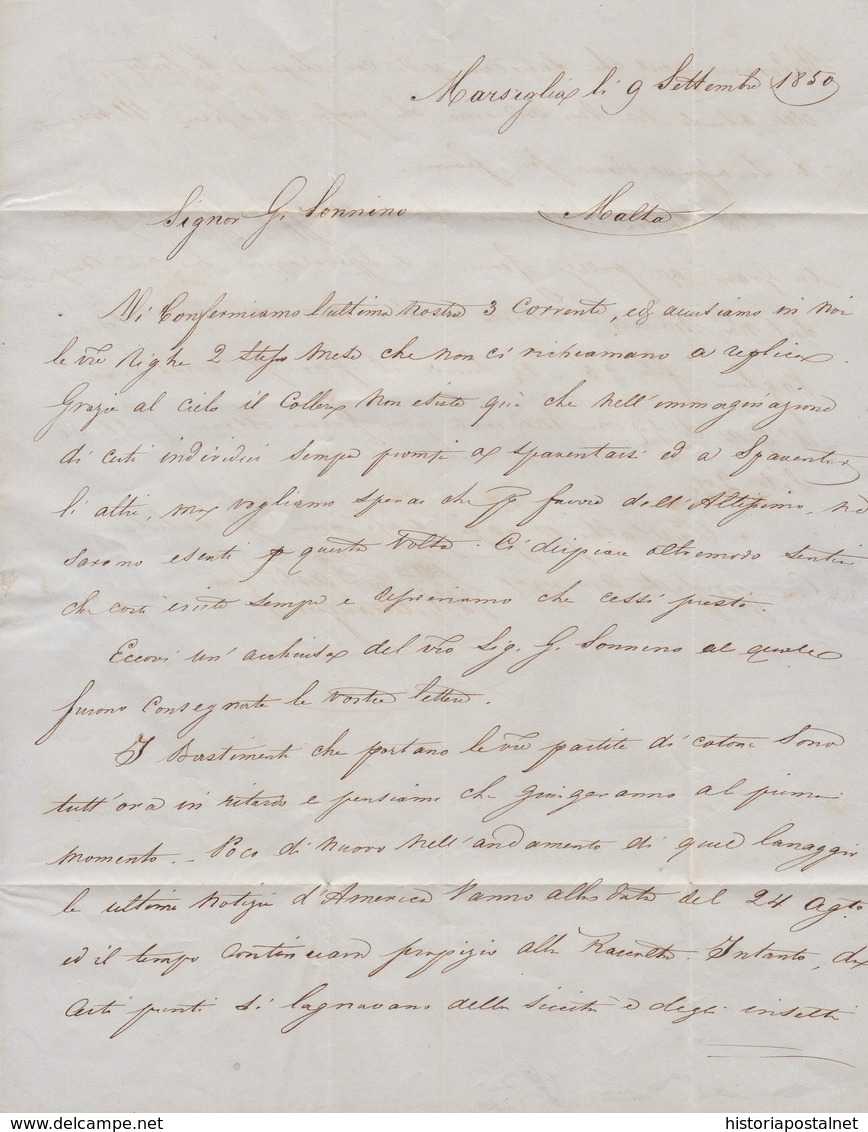 Marsiglia li 9 Settembre 1850
Signor G. Sonnino Malta
Vi Confermiamo l'ultima nostra 3 Corrente, ed accusiamo in noi
le vre righe 2 stesso mese che non ci richiamano a replica.
Grazie al cielo il Collera non esiste quì che nell'immaginazione
di certi individui sempre pronti a spaventarsi ed a Spaventar
li altri, ma vogliamo sperar che p favore dell'Altissimo, ne
saremo esenti p questa volta. Ci dispiace oltremodo sentire
che costì esiste sempre e desideriamo che cessi presto.
Eccovi un'acchiusa del vro Sig. G. Sonnino al quale
furono consegnate le vostre lettere.
I Bastimenti che portano le vre partite di cotone Sono
tutt'ora in ritardo e pensiamo che giungeranno al primo
momento. _ Poco di nuovo nell'andamento di quel lanaggio
le ultime notizie d'America Vanno alla data del 24 Agto
ed il tempo continuava propizio alla Raccolta. Intanto, da
Certi punti si lagnavano della siccità e degli insetti
historiapostalnet